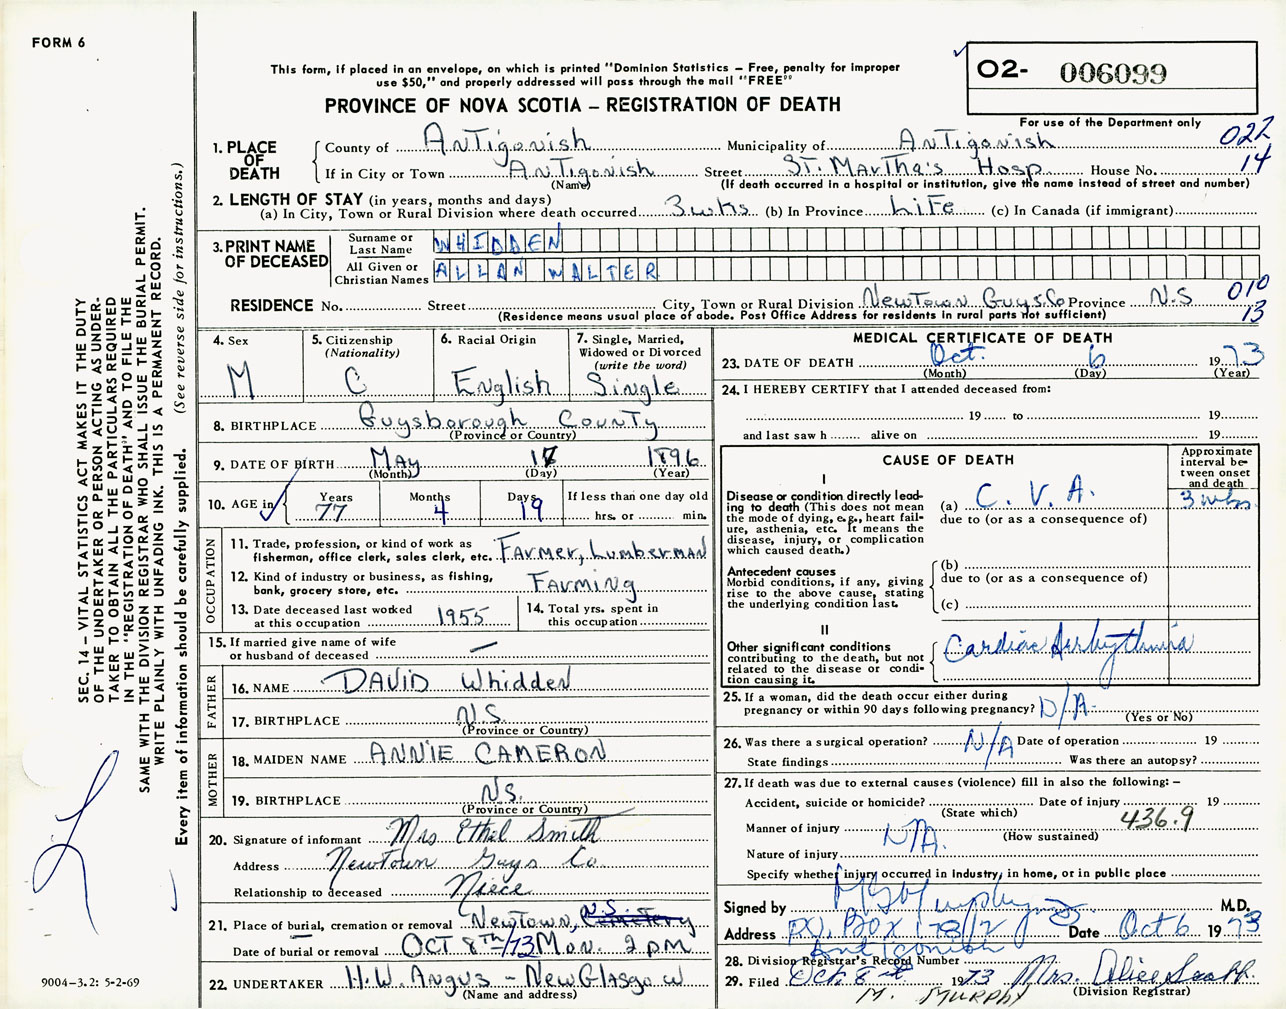 FORM 6
This form, if placed in an envelope, on which is printed "Dominion Statistics – Free, penalty for improper
use $50," and properly addressed will pass through the mail "FREE"
PROVINCE OF NOVA SCOTIA – REGISTRATION OF DEATH
O2- 006099
For use of the Department only
022
14
1. PLACE OF DEATH
County of Antigonish Municipality of Antigonish
If in City or Town Antigonish Street St. Martha's Hosp House No.
(Name) (If death occurred in a hospital or institution, give the name instead of street and number)
2. LENGTH OF STAY (in years, months and days)
(a) In City, Town or Rural Division where death occurred 3 wks (b) In Province Life (c) In Canada (if immigrant)
3. PRINT NAME OF DECEASED
Surname or Last Name WHIDDEN
All Given or Christian Names ALLAN WALTER
RESIDENCE No. Street City, Town or Rural Division Newtown Guys Co Province N.S
010
13
(Residence means usual place of abode. Post Office Address for residents in rural parts not sufficient)
4. Sex M
5. Citizenship (Nationality) C
6. Racial Origin English
7. Single, Married, Widowed or Divorced (write the word) Single
8. BIRTHPLACE Guysborough County
(Province or Country)
9. DATE OF BIRTH May 17 1896
(Month) (Day) (Year)
10. AGE in Years 77 Months 4 Days 19 If less than one day old hrs. or min.
OCCUPATION
11. Trade, profession, or kind of work as
fisherman, office clerk, sales clerk, etc. Farmer, Lumberman
12. Kind of industry or business, as fishing,
bank, grocery store, etc. Farming
13. Date deceased last worked
at this occupation 1955
14. Total yrs. spent in
this occupation
15. If married give name of wife
or husband of deceased —
FATHER
16. NAME DAVID Whidden
17. BIRTHPLACE N.S.
(Province or Country)
MOTHER
18. MAIDEN NAME ANNIE CAMERON
19. BIRTHPLACE N.S.
(Province or Country)
20. Signature of informant Mrs Ethel Smith
Address Newtown Guys Co.
Relationship to deceased Niece
21. Place of burial, cremation or removal Newtown, N.S. Cemetery
Date of burial or removal OCT 8th/73 Mon. 2 pm
22. UNDERTAKER H.W. Angus – New Glasgow
(Name and address)
MEDICAL CERTIFICATE OF DEATH
23. DATE OF DEATH Oct. 6 1973
(Month) (Day) (Year)
24. I HEREBY CERTIFY that I attended deceased from:
19 to 19
and last saw h alive on 19
CAUSE OF DEATH
Approximate interval between onset and death
I
Disease or condition directly lead-
ing to death (This does not mean
the mode of dying, e.g., heart fail-
ure, asthenia, etc. It means the
disease, injury, or complication
which caused death.)
(a) C. V. A. 3 wks
due to (or as a consequence of)
Antecedent causes
Morbid conditions, if any, giving
rise to the above cause, stating
the underlying condition last.
(b)
due to (or as a consequence of)
(c)
II
Other significant conditions
contributing to the death, but not
related to the disease or condi-
tion causing it.
Cardiac Arrhythmia
25. If a woman, did the death occur either during
pregnancy or within 90 days following pregnancy? N/A
(Yes or No)
26. Was there a surgical operation? N/A Date of operation 19
State findings Was there an autopsy?
27. If death was due to external causes (violence) fill in also the following: –
Accident, suicide or homicide? Date of injury 19
(State which)
436.9
Manner of injury N/A.
(How sustained)
Nature of injury
Specify whether injury occurred in Industry, in home, or in public place
Signed by Murphy M.D.
Address P.O. Box Date Oct 6 1973
Antigonish
28. Division Registrar's Record Number
29. Filed Oct. 8th 1973 Mrs. Alice
(Division Registrar)
M. MURPHY
SEC. 14 – VITAL STATISTICS ACT MAKES IT THE DUTY
OF THE UNDERTAKER OR PERSON ACTING AS UNDER-
TAKER TO OBTAIN ALL THE PARTICULARS REQUIRED
IN THE "REGISTRATION OF DEATH" AND TO FILE THE
SAME WITH THE DIVISION REGISTRAR WHO SHALL ISSUE THE BURIAL PERMIT.
WRITE PLAINLY WITH UNFADING INK. THIS IS A PERMANENT RECORD.
Every item of information should be carefully supplied. (See reverse side for instructions.)
9004-3.2: 5-2-69